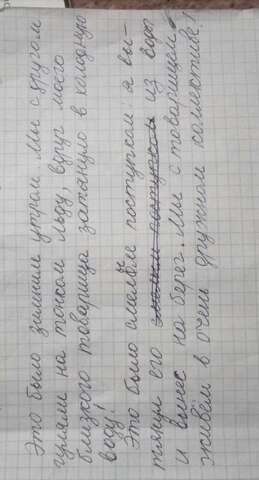 Это было зимним утром. Мы с другом
гуляли на тонком льду, вдруг моего
близкого товарища затянуло в холодную
воду!
Это было смелым поступком: я вы-
тянул его из воды
и вынес на берег. Мы с товарищем
живём в очень дружном коллективе!